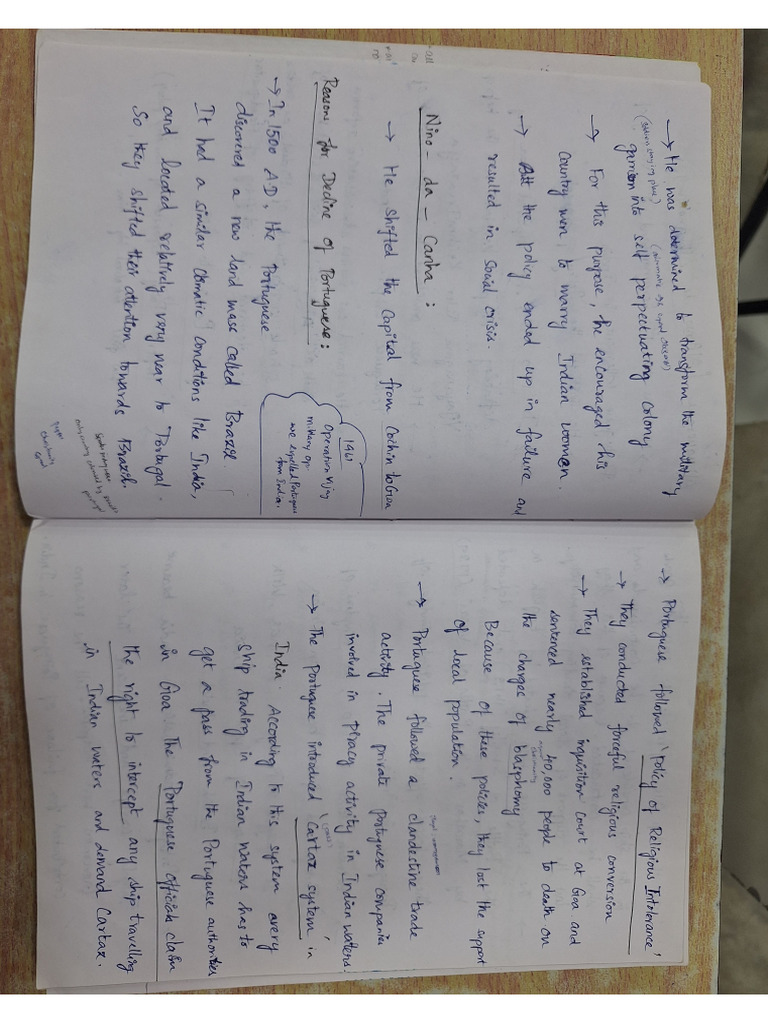 → He was determined to transform the military
garrison into self perpetuating colony
→ For this purpose, he encouraged his
country men to marry Indian women.
→ But the policy ended up in failure and
resulted in social crisis.
Nino - da - Canha :
→ He shifted the Capital from Cochin to Goa
Reasons for Decline of Portuguese :
→ In 1500 AD, the Portuguese
discovered a new land mass called Brazil
It had a similar climatic conditions like India,
and located relatively very near to Portugal.
So they shifted their attention towards Brazil.
1961
Operation Vijay
military op.
we expelled Portuguese
from India.
→ Portuguese followed 'Policy of Religious Intolerance'
→ They conducted forceful religious conversion
→ They established inquisition court at Goa and
sentenced nearly 40,000 people to death on
the charges of blasphomy
Because of these policies, they lost the support
of local population.
→ Portuguese followed a clandestine trade
activity. The private Portuguese companies
involved in piracy activity in Indian waters.
→ The Portuguese introduced 'Cartaz system' in
(pass)
India. According to this system every
ship trading in Indian waters has to
get a pass from the Portuguese authorities
in Goa. The Portuguese officials claim
the right to intercept any ship travelling
in Indian waters and demand Cartaz.